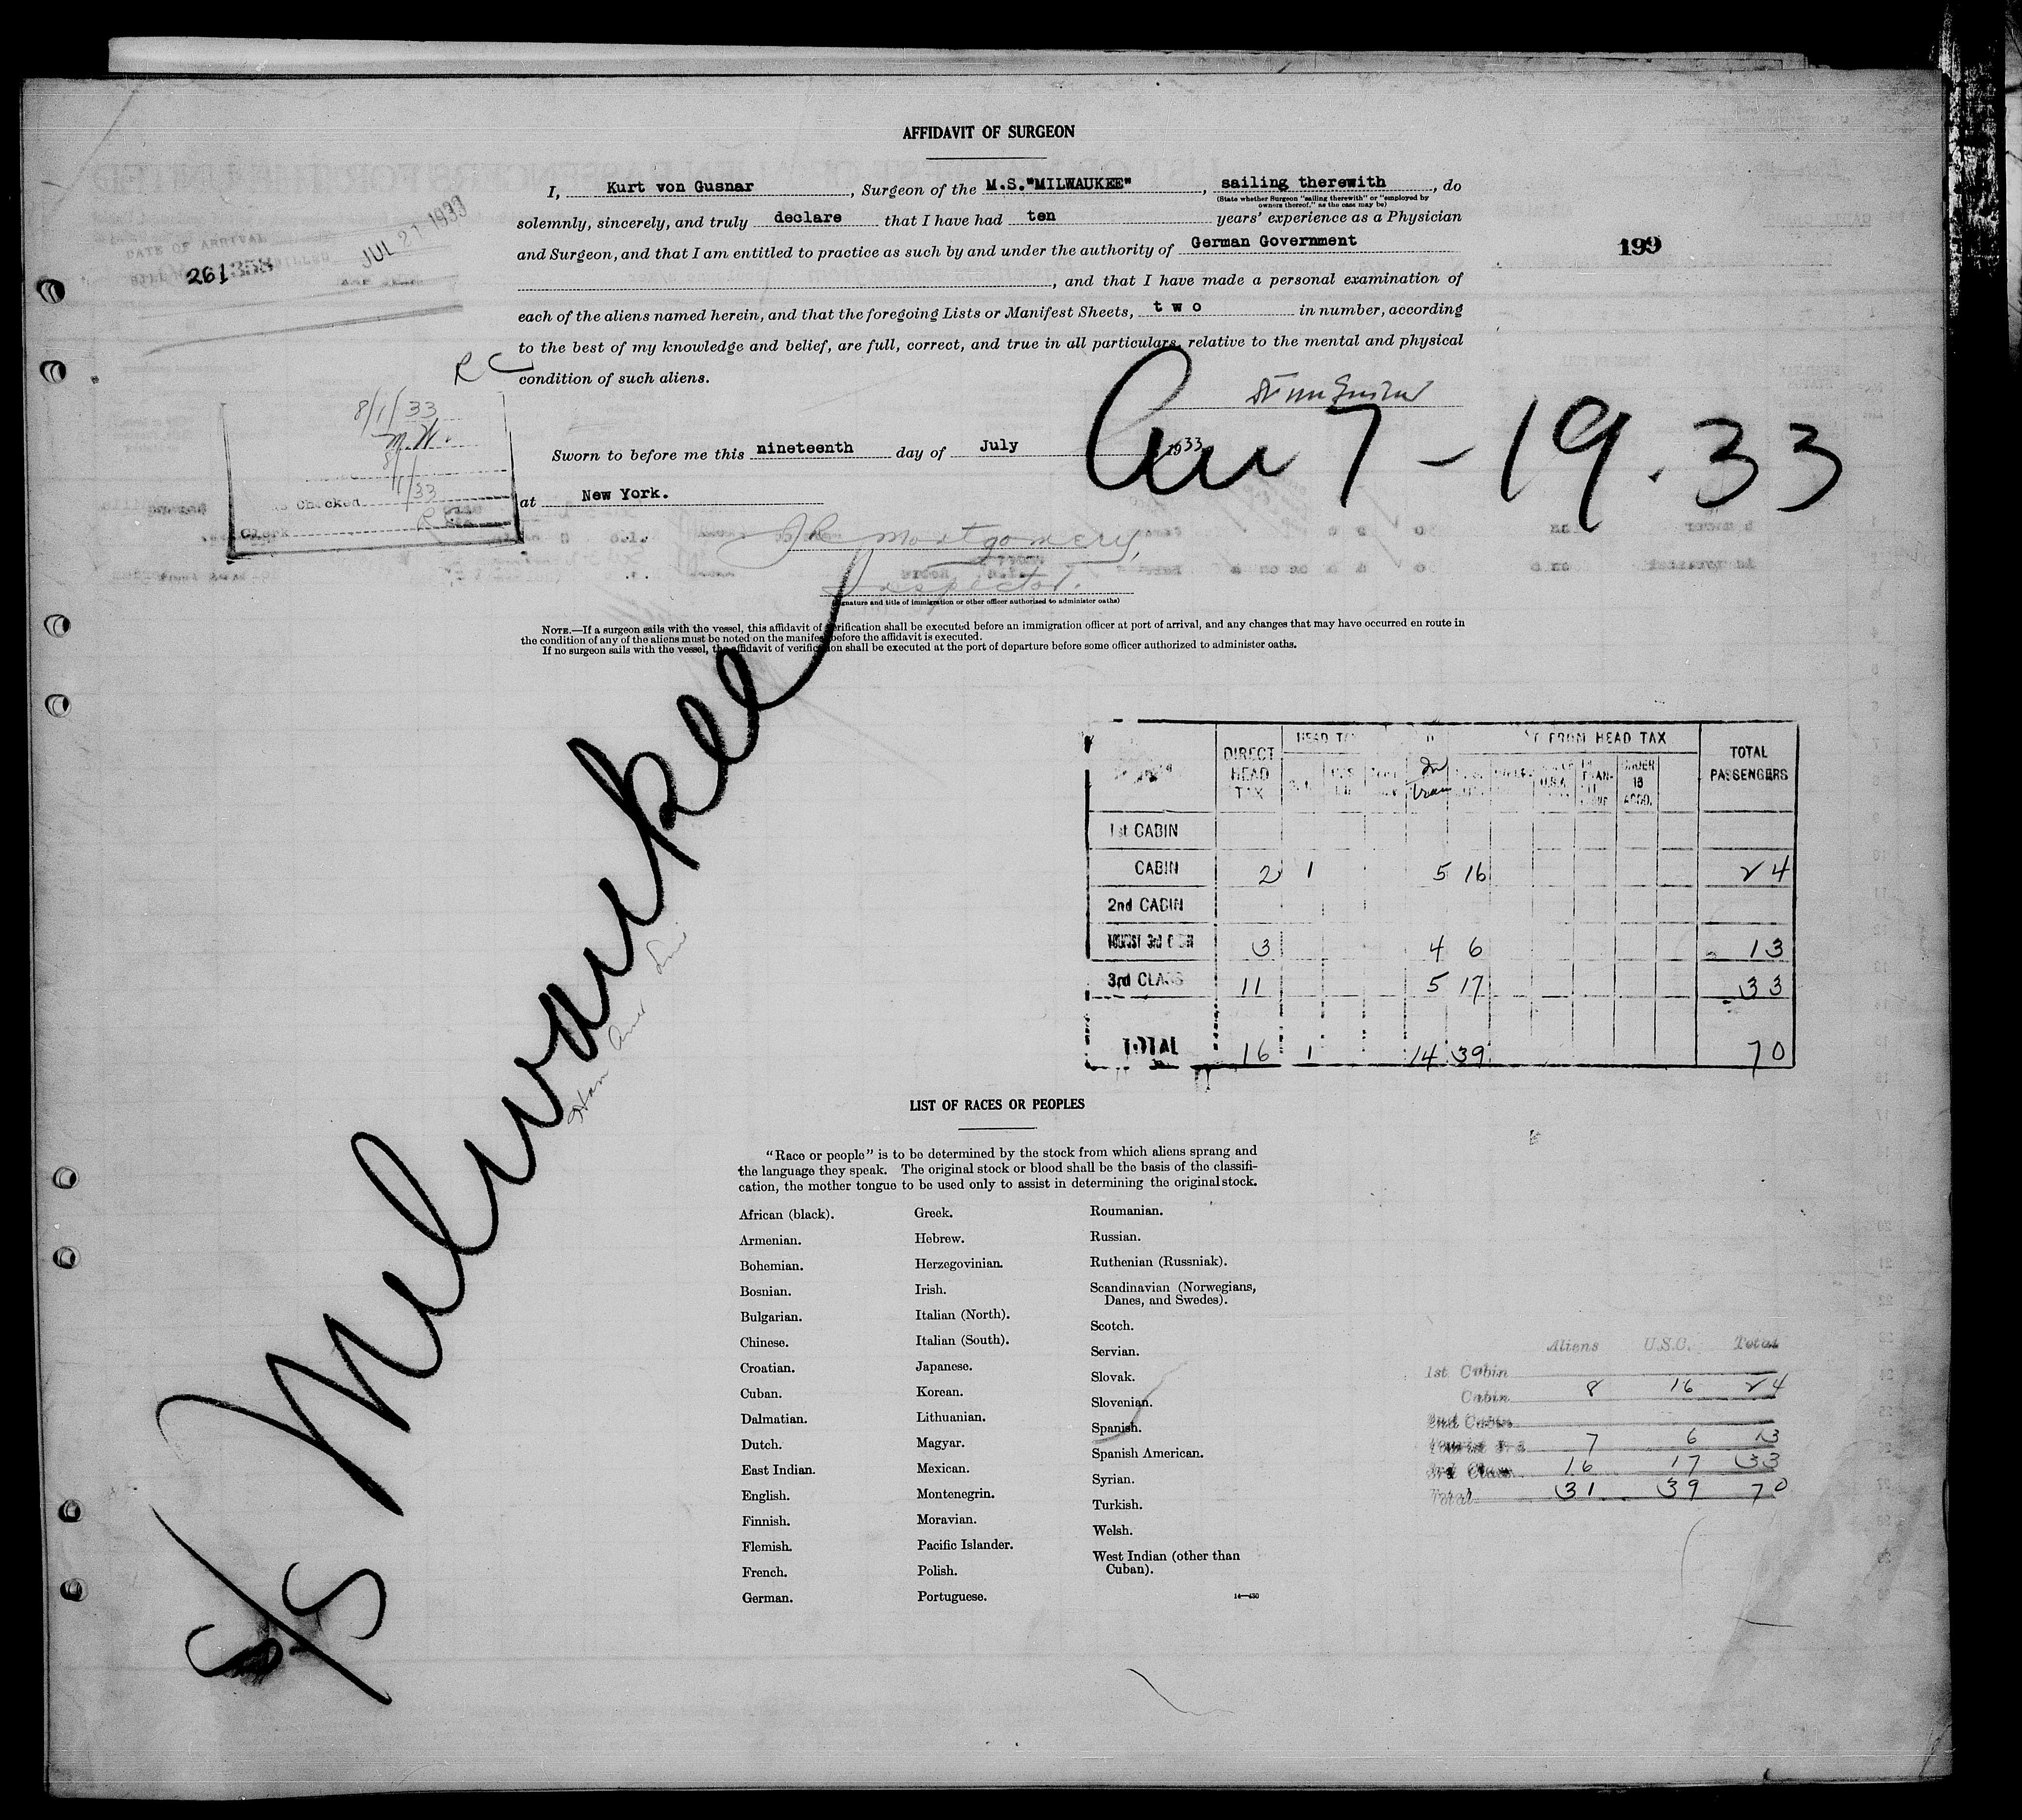 AFFIDAVIT OF SURGEON
I, Kurt von Gusnar, Surgeon of the M.S."MILWAUKEE", sailing therewith, do
(State whether Surgeon "sailing therewith" or "employed by
owners thereof," as the case may be)
solemnly, sincerely, and truly declare that I have had ten years' experience as a Physician
and Surgeon, and that I am entitled to practice as such by and under the authority of German Government
, and that I have made a personal examination of
each of the aliens named herein, and that the foregoing Lists or Manifest Sheets, two in number, according
to the best of my knowledge and belief, are full, correct, and true in all particulars, relative to the mental and physical
condition of such aliens.
199
DATE OF ARRIVAL
JUL 21 1933
261358
R C
8/1/33
M.W.
8/1/33
Checked
Clerk
Arr 7-19.33
Sworn to before me this nineteenth day of July 1933
at New York.
J R Montgomery,
Inspector.
(Signature and title of immigration or other officer authorized to administer oaths)
NOTE.—If a surgeon sails with the vessel, this affidavit of verification shall be executed before an immigration officer at port of arrival, and any changes that may have occurred en route in
the condition of any of the aliens must be noted on the manifest before the affidavit is executed.
If no surgeon sails with the vessel, the affidavit of verification shall be executed at the port of departure before some officer authorized to administer oaths.
S/S Milwaukee
Ham Amer Line
DIRECT HEAD TAX HEAD TAX FROM HEAD TAX TOTAL PASSENGERS
In Tran U.S.A. UNDER 16 ACCO.
1st CABIN
CABIN 2 1 5 16 24
2nd CABIN
TOURIST 3rd CABIN 3 4 6 13
3rd CLASS 11 5 17 33
TOTAL 16 1 14 39 70
LIST OF RACES OR PEOPLES
"Race or people" is to be determined by the stock from which aliens sprang and
the language they speak. The original stock or blood shall be the basis of the classifi-
cation, the mother tongue to be used only to assist in determining the original stock.
African (black).
Armenian.
Bohemian.
Bosnian.
Bulgarian.
Chinese.
Croatian.
Cuban.
Dalmatian.
Dutch.
East Indian.
English.
Finnish.
Flemish.
French.
German.
Greek.
Hebrew.
Herzegovinian.
Irish.
Italian (North).
Italian (South).
Japanese.
Korean.
Lithuanian.
Magyar.
Mexican.
Montenegrin.
Moravian.
Pacific Islander.
Polish.
Portuguese.
Roumanian.
Russian.
Ruthenian (Russniak).
Scandinavian (Norwegians,
Danes, and Swedes).
Scotch.
Servian.
Slovak.
Slovenian.
Spanish.
Spanish American.
Syrian.
Turkish.
Welsh.
West Indian (other than
Cuban).
14—430
Aliens U.S.C. Total
1st Cabin
Cabin 8 16 24
2nd Cabin
Tourist 3rd 7 6 13
3rd Class 16 17 33
Total 31 39 70